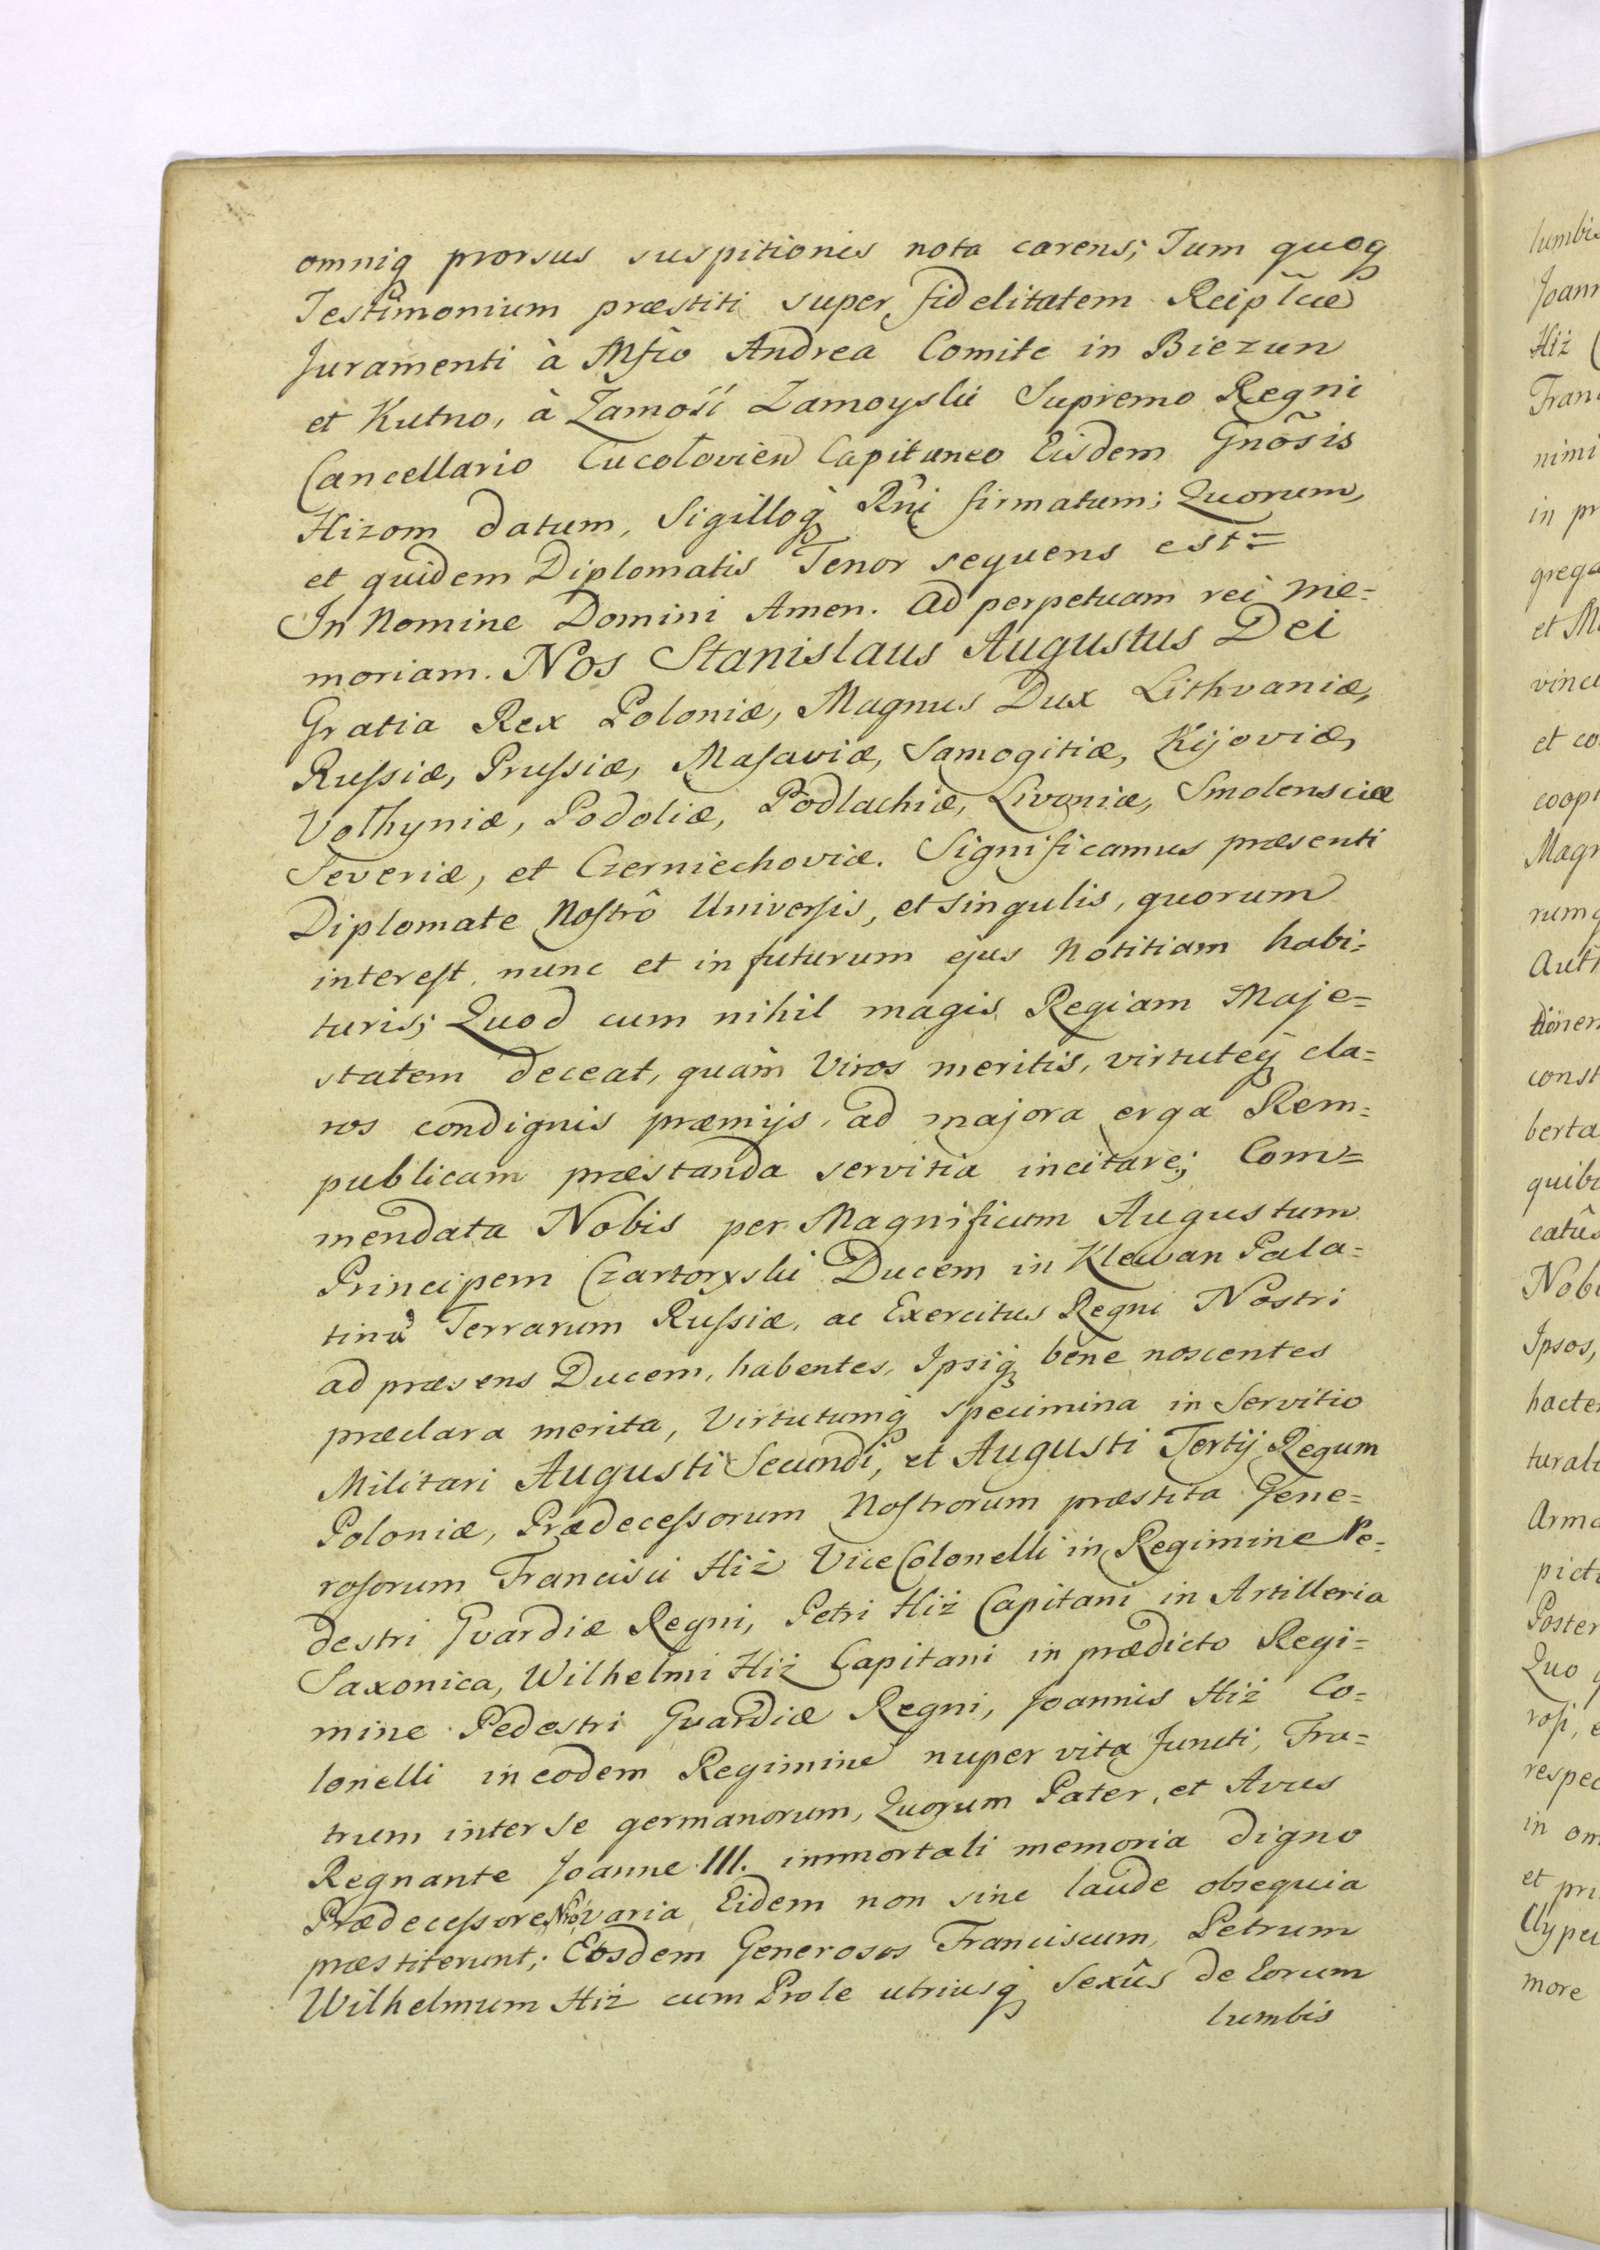 omniq prorsus suspitionis nota carens; Tum quoq
Testimonium præstiti super fidelitatem Reiplcæ
Juramenti à Mfico Andrea Comite in Biezun
et Kutno, à Zamość Zamoyski Supremo Regni
Cancellario Capitaneo Eisdem Gnõsis
Hizom datum, Sigilloq Rñi firmatum; Quorum,
et quidem Diplomatis Tenor sequens est=
In Nomine Domini Amen. Ad perpetuam rei me=
moriam. Nos Stanislaus Augustus Dei
Gratia Rex Poloniæ, Magnus Dux Lithvaniæ,
Russiæ, Prussiæ, Masaviæ, Samogitiæ, Kijoviæ,
Volhyniæ, Podoliæ, Podlachiæ, Livoniæ, Smolensciæ
Severiæ, et Czerniechoviæ. Significamus præsenti
Diplomate Nostrô Universis, et singulis, quorum
interest, nunc et in futurum ejus Notitiam habi=
turis; Quod cum nihil magis Regiam Maje=
statem deceat, quàm Viros meritis, virtuteq cla=
ros condignis præmijs, ad majora erga Rem=
publicam præstanda servitia incitare; Com=
mendata Nobis per Magnificum Augustum
Principem Czartoryski Ducem in Klewan Pala=
tinũ Terrarum Russiæ, ac Exercitus Regni Nostri
ad præsens Ducem, habentes, Ipsiq bene noscentes
præclara merita, Virtutumq specimina in Servitio
Militari Augusti Secundi, et Augusti Tertij Regum
Poloniæ, Prædecessorum Nostrorum præstita Gene=
rosorum Francisci Hiż Vice Colonelli in Regimine Pe=
destri Gvardiæ Regni, Petri Hiż Capitani in Artilleria
Saxonica, Wilhelmi Hiż Capitani in prædicto Regi=
mine Pedestri Gvardiæ Regni, Joannis Hiż Co=
lonelli in eodem Regimine nuper vita functi, Fra=
trum inter se germanorum, Quorum Pater, et Avus
Regnante Joanne III. immortali memoria digno
Prædecessore Nrô varia Eidem non sine laude obsequia
præstiterunt; Eosdem Generosos Franciscum, Petrum
Wilhelmum Hiż cum Prole utriusq Sexûs de Eorum
lumbis
lumbis
Joann
Hiż
Fran
nimi
in pr
grega
et M
vinc
et co
coopt
Magn
rumq
Auth
const
berta
quib
catûs
Nob
Ipsos,
hacte
tural
Arma
pict
Poster
Quo
rosi, e
respec
in om
et pri
more